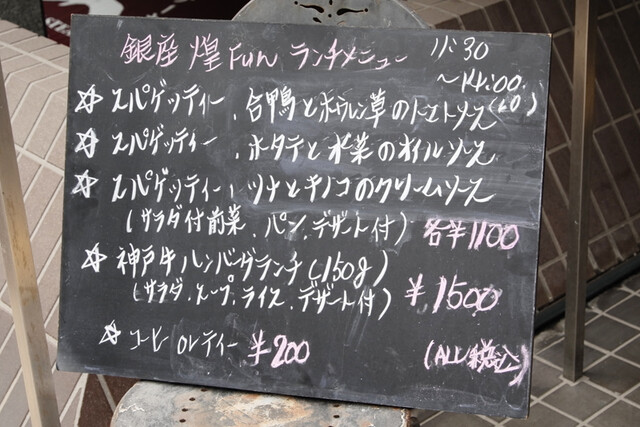 銀座 煌 Fun ランチメニュー 11:30
～14:00
(LO)
☆ スパゲッティー、合鴨とホウレン草のトマトソース
☆ スパゲッティー、ホタテと水菜のオイルソース
☆ スパゲッティー、ツナとキノコのクリームソース
(サラダ付前菜、パン、デザート付) 各¥1100
☆ 神戸牛ハンバーグランチ(150g)
(サラダ、スープ、ライス、デザート付) ¥1500
☆ コーヒー or ティー ¥200 (ALL 税込)